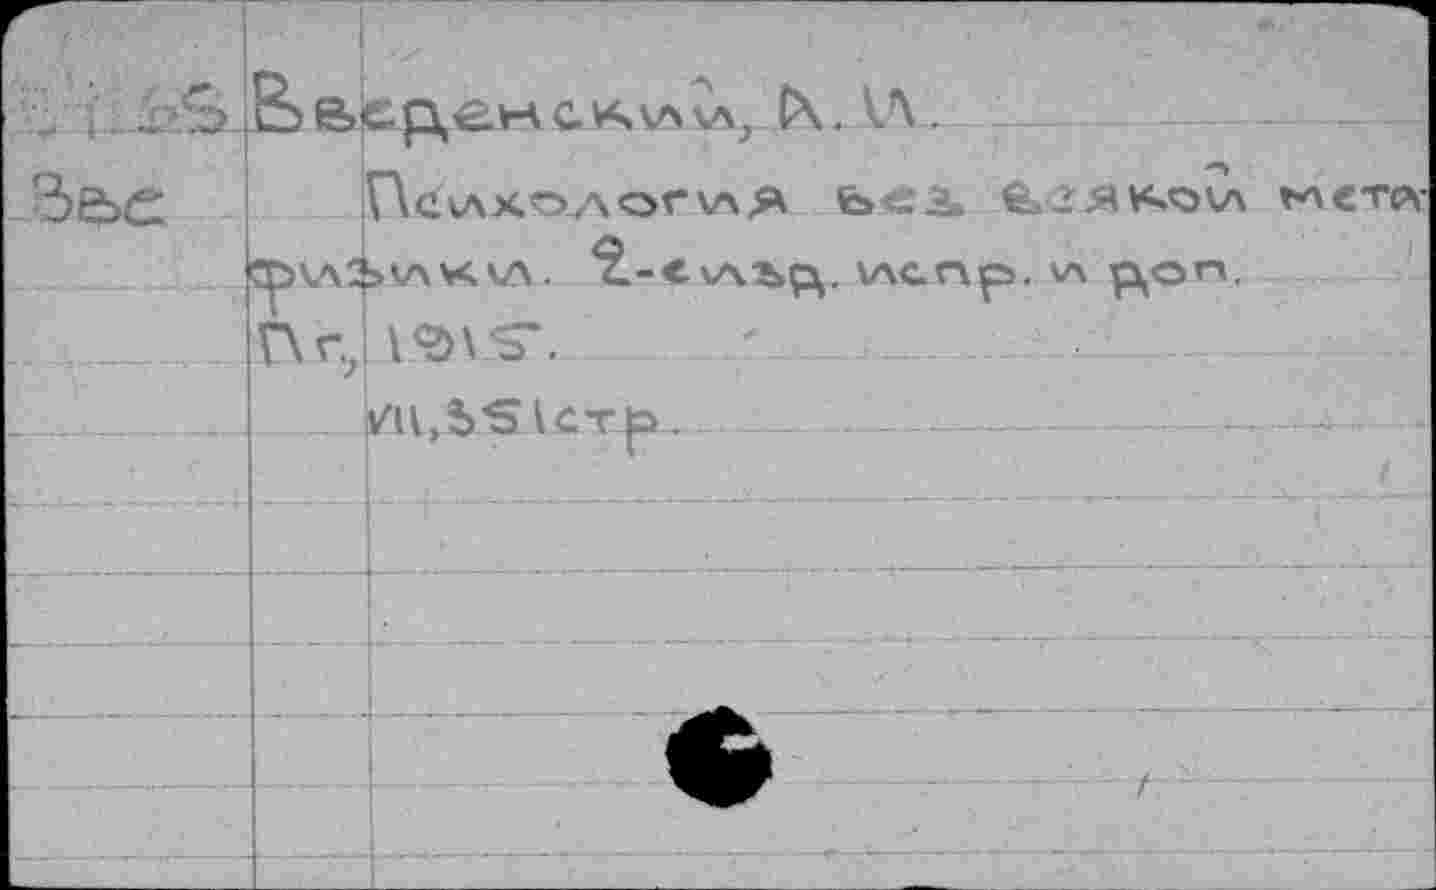 Введенский, А. И.
Ввс
Психология без всякой мета-
физики. 2-е изд. испр. и доп.
Пг., 1915.
VII, 351 стр.